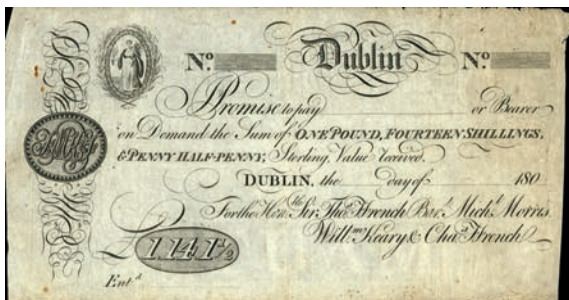 No. Dublin No.
I Promise to pay or Bearer
on Demand the Sum of ONE POUND, FOURTEEN SHILLINGS,
& PENNY HALF-PENNY, Sterling, Value received.
DUBLIN, the day of 180
For the Hon.ble Sir Tho.s Ffrench Bar.t Mich.l Morris
Will.m Keary & Cha.s Ffrench
£ 1 14 1 1/2
Ent.d